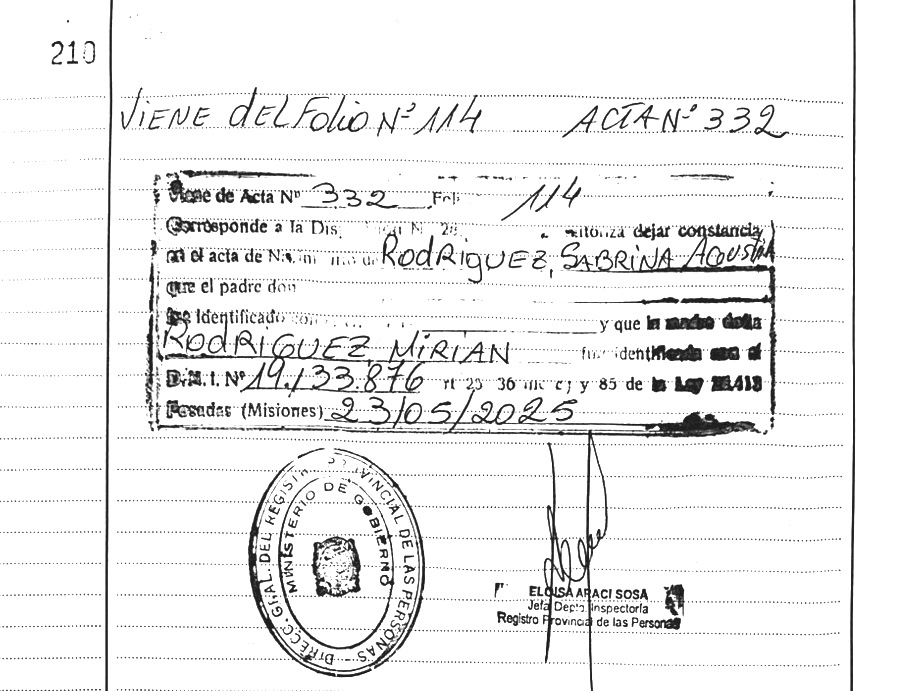 210
VIENE DEL Folio Nº 114 ACTA Nº 332
Viene de Acta Nº 332 Foli 114
Corresponde a la Dis. Nº autoriza dejar constancia
en el acta de RODRIGUEZ, SABRINA AGUSTINA
que el padre don
Identificado y que la madre doña
RODRIGUEZ, MIRIAN identificada con el
D.N.I. Nº 19.133.876 36 inc c) y 85 de la Ley 26.413
Posadas (Misiones) 23/05/2025
DIRECC. GRAL. DEL REGISTRO PROVINCIAL DE LAS PERSONAS
MINISTERIO DE GOBIERNO
ELOISA ARACI SOSA
Jefa Depto. Inspectoría
Registro Provincial de las Personas